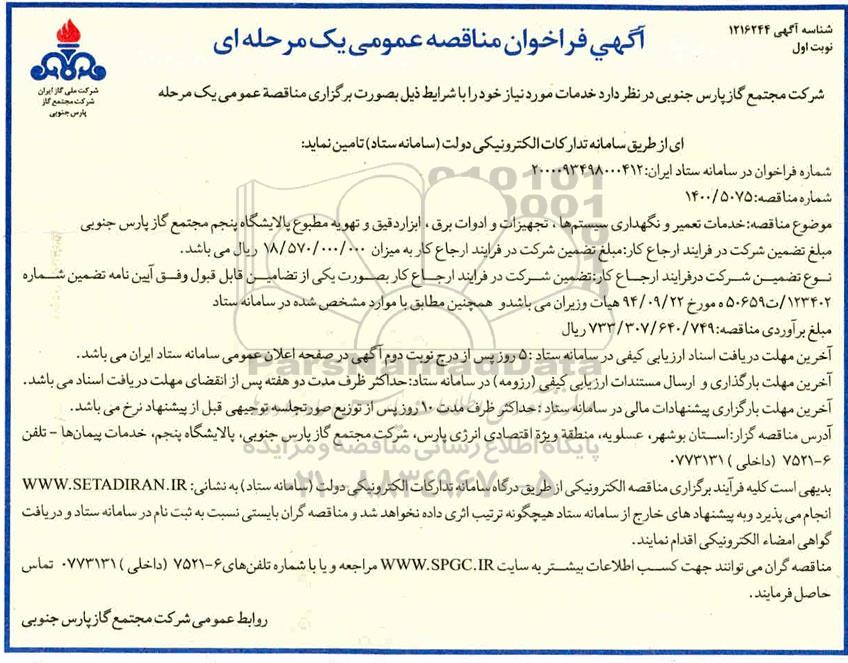 شناسه آگهی ۱۲۱۶۲۴۴
نوبت اول
آگهي فراخوان مناقصه عمومی یک مرحله ای
شرکت ملی گاز ایران
شرکت مجتمع گاز
پارس جنوبی
شرکت مجتمع گاز پارس جنوبی در نظر دارد خدمات مورد نیاز خود را با شرایط ذیل بصورت برگزاری مناقصة عمومی یک مرحله
ای از طریق سامانه تدارکات الکترونیکی دولت (سامانه ستاد) تامین نماید:
شماره فراخوان در سامانه ستاد ایران: ۲۰۰۰۰۹۳۴۹۸۰۰۰۴۱۲
شماره مناقصه: ۱۴۰۰/۵۰۷۵
موضوع مناقصه: خدمات تعمیر و نگهداری سیستم‌ها ، تجهیزات و ادوات برق ، ابزاردقیق و تهویه مطبوع پالایشگاه پنجم مجتمع گاز پارس جنوبی
مبلغ تضمین شرکت در فرایند ارجاع کار: مبلغ تضمین شرکت در فرایند ارجاع کار به میزان ۱۸/۵۷۰/۰۰۰/۰۰۰ ریال می باشد.
نوع تضمین شرکت درفرایند ارجاع کار: تضمین شرکت در فرایند ارجاع کار بصورت یکی از تضامین قابل قبول وفق آیین نامه تضمین شماره
۱۲۳۴۰۲/ت۵۰۶۵۹ ه مورخ ۹۴/۰۹/۲۲ هیأت وزیران می باشدو همچنین مطابق با موارد مشخص شده در سامانه ستاد
مبلغ برآوردی مناقصه: ۷۳۳/۳۰۷/۶۴۰/۷۴۹ ریال
آخرین مهلت دریافت اسناد ارزیابی کیفی در سامانه ستاد : ۵ روز پس از درج نوبت دوم آگهی در صفحه اعلان عمومی سامانه ستاد ایران می باشد.
آخرین مهلت بارگذاری و ارسال مستندات ارزیابی کیفی (رزومه) در سامانه ستاد: حداکثر ظرف مدت دو هفته پس از انقضای مهلت دریافت اسناد می باشد.
آخرین مهلت بارگزاری پیشنهادات مالی در سامانه ستاد : حداکثر ظرف مدت ۱۰ روز پس از توزیع صورتجلسه توجیهی قبل از پیشنهاد نرخ می باشد.
آدرس مناقصه گزار: استان بوشهر، عسلویه، منطقة ویژة اقتصادی انرژی پارس، شرکت مجتمع گاز پارس جنوبی، پالایشگاه پنجم، خدمات پیمان‌ها – تلفن
۶-۷۵۲۱ (داخلی) ۰۷۷۳۱۳۱
بدیهی است کلیه فرآیند برگزاری مناقصه الکترونیکی از طریق درگاه سامانه تدارکات الکترونیکی دولت (سامانه ستاد) به نشانی: WWW.SETADIRAN.IR
انجام می پذیرد وبه پیشنهاد های خارج از سامانه ستاد هیچگونه ترتیب اثری داده نخواهد شد و مناقصه گران بایستی نسبت به ثبت نام در سامانه ستاد و دریافت
گواهی امضاء الکترونیکی اقدام نمایند.
مناقصه گران می توانند جهت کسب اطلاعات بیشتر به سایت WWW.SPGC.IR مراجعه و یا با شماره تلفن‌های ۶-۷۵۲۱ (داخلی) ۰۷۷۳۱۳۱ تماس
حاصل فرمایند.
روابط عمومی شرکت مجتمع گاز پارس جنوبی
ParsNamadData
پایگاه اطلاع رسانی مناقصه و مزایده
۰۲۱-۸۸۳۴۹۶۷۰-۵